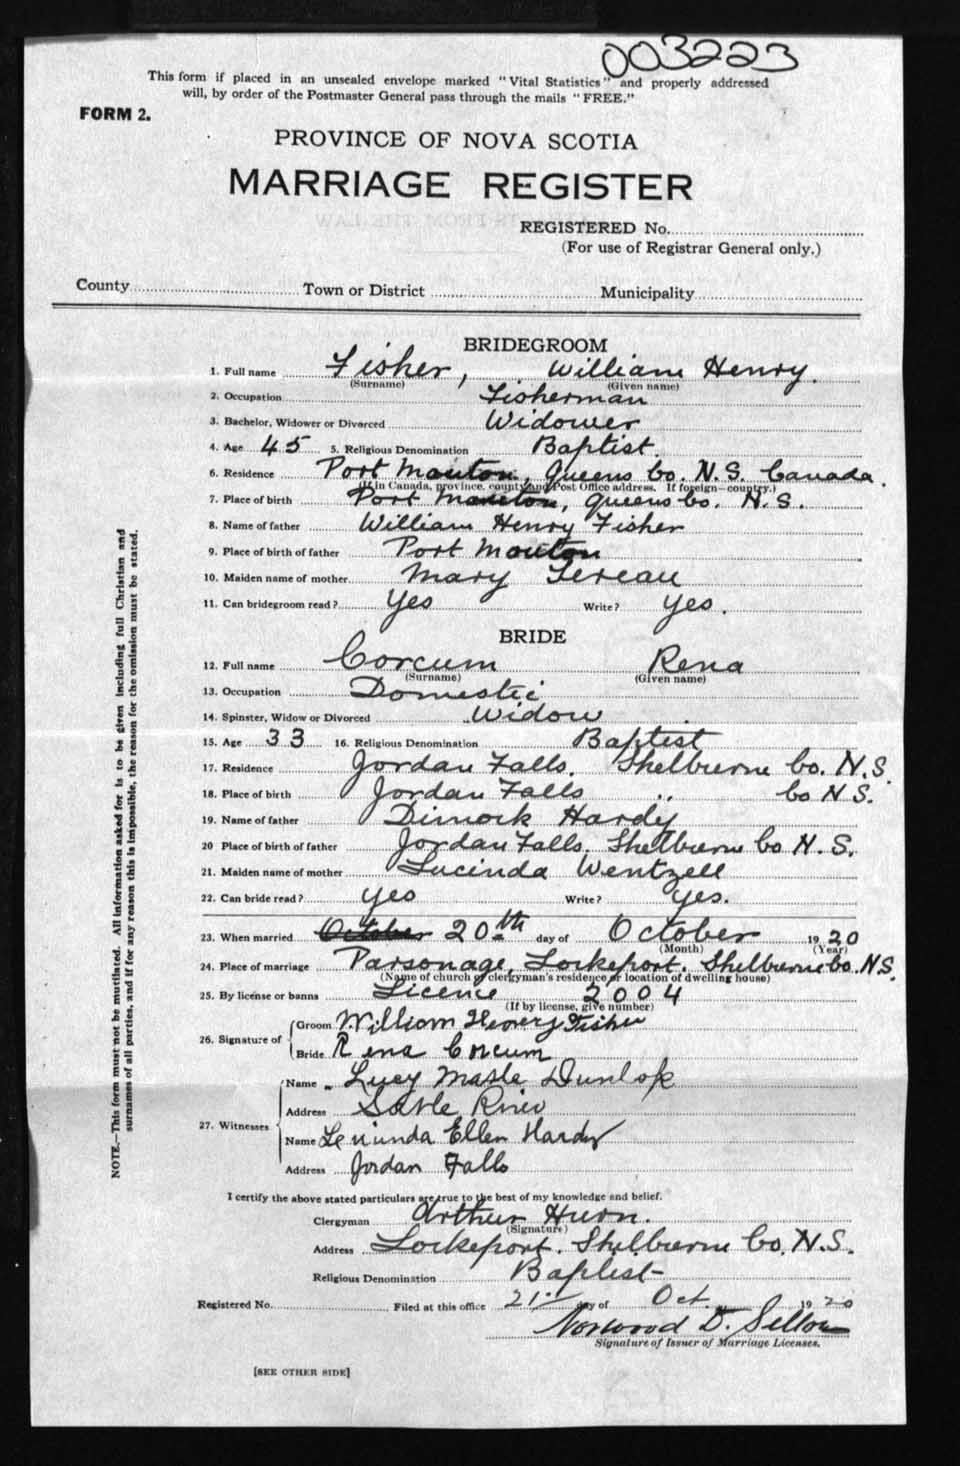 003223
This form if placed in an unsealed envelope marked "Vital Statistics" and properly addressed
will, by order of the Postmaster General pass through the mails "FREE."
FORM 2.
PROVINCE OF NOVA SCOTIA
MARRIAGE REGISTER
REGISTERED No.
(For use of Registrar General only.)
County Town or District Municipality
BRIDEGROOM
1. Full name Fisher, William Henry.
(Surname) (Given name)
2. Occupation Fisherman
3. Bachelor, Widower or Divorced Widower
4. Age 45 5. Religious Denomination Baptist.
6. Residence Port Mouton, Queens Co. N.S. Canada.
(If in Canada, province, county and Post Office address. If foreign—country.)
7. Place of birth Port Mouton, Queens Co. N.S.
8. Name of father William Henry Fisher
9. Place of birth of father Port Mouton
10. Maiden name of mother Mary Tereau
11. Can bridegroom read? Yes Write? Yes.
BRIDE
12. Full name Corcum Rena
(Surname) (Given name)
13. Occupation Domestic
14. Spinster, Widow or Divorced Widow
15. Age 33 16. Religious Denomination Baptist
17. Residence Jordan Falls. Shelburne Co. N.S.
18. Place of birth Jordan Falls " Co N.S.
19. Name of father Dimock Hardy
20 Place of birth of father Jordan Falls. Shelburne Co N.S.
21. Maiden name of mother Lucinda Wentzell
22. Can bride read? Yes Write? Yes.
23. When married October 20th day of October 1920
(Month) (Year)
24. Place of marriage Parsonage, Lockeport. Shelburne Co. N.S.
(Name of church or clergyman's residence or location of dwelling house)
25. By license or banns Licence 2004
(If by license, give number)
26. Signature of Groom William Henery Fisher
Bride Rena Corcum
27. Witnesses
Name Lucy Dunlop
Address Sable River
Name Ellen Hardy
Address Jordan Falls
I certify the above stated particulars are true to the best of my knowledge and belief.
Clergyman Arthur
(Signature)
Address Lockeport. Shelburne Co. N.S.
Religious Denomination Baptist
Registered No. Filed at this office 21st day of Oct. 1920
Norwood D.
Signature of Issuer of Marriage Licenses.
[SEE OTHER SIDE]
NOTE.—This form must not be mutilated. All information asked for is to be given including full Christian and
surnames of all parties, and if for any reason this is impossible, the reason for the omission must be stated.